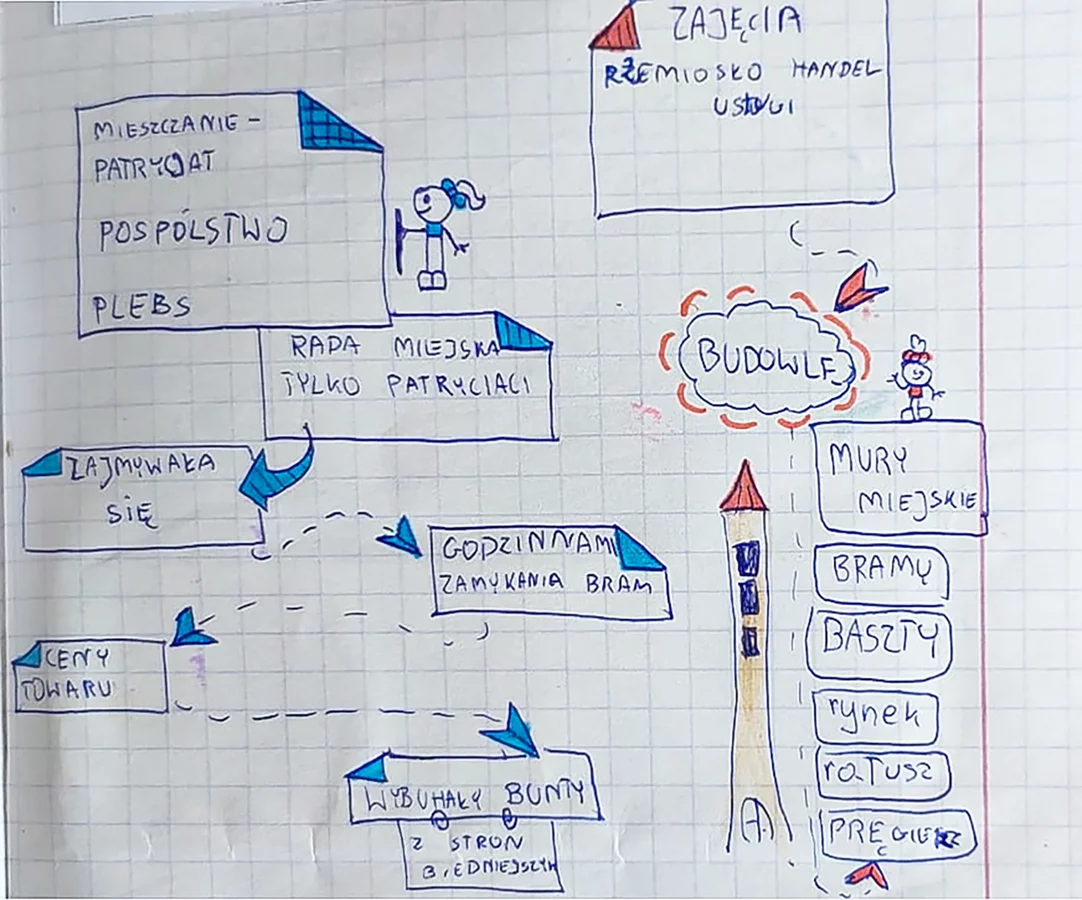 ZAJĘCIA
RZEMIOSŁO HANDEL
USŁUGI
MIESZCZANIE –
PATRYCJAT
POSPÓLSTWO
PLEBS
RADA MIEJSKA
TYLKO PATRYCIACI
ZAJMYWAŁA
SIĘ
GODZINNAMI
ZAMYKANIA BRAM
CENY
TOWARU
WYBUHAŁY BUNTY
Z STRON
BIEDNIEJSZYH
BUDOWLE
MURY
MIEJSKIE
BRAMY
BASZTY
rynek
raTusz
PRĘGIERZ